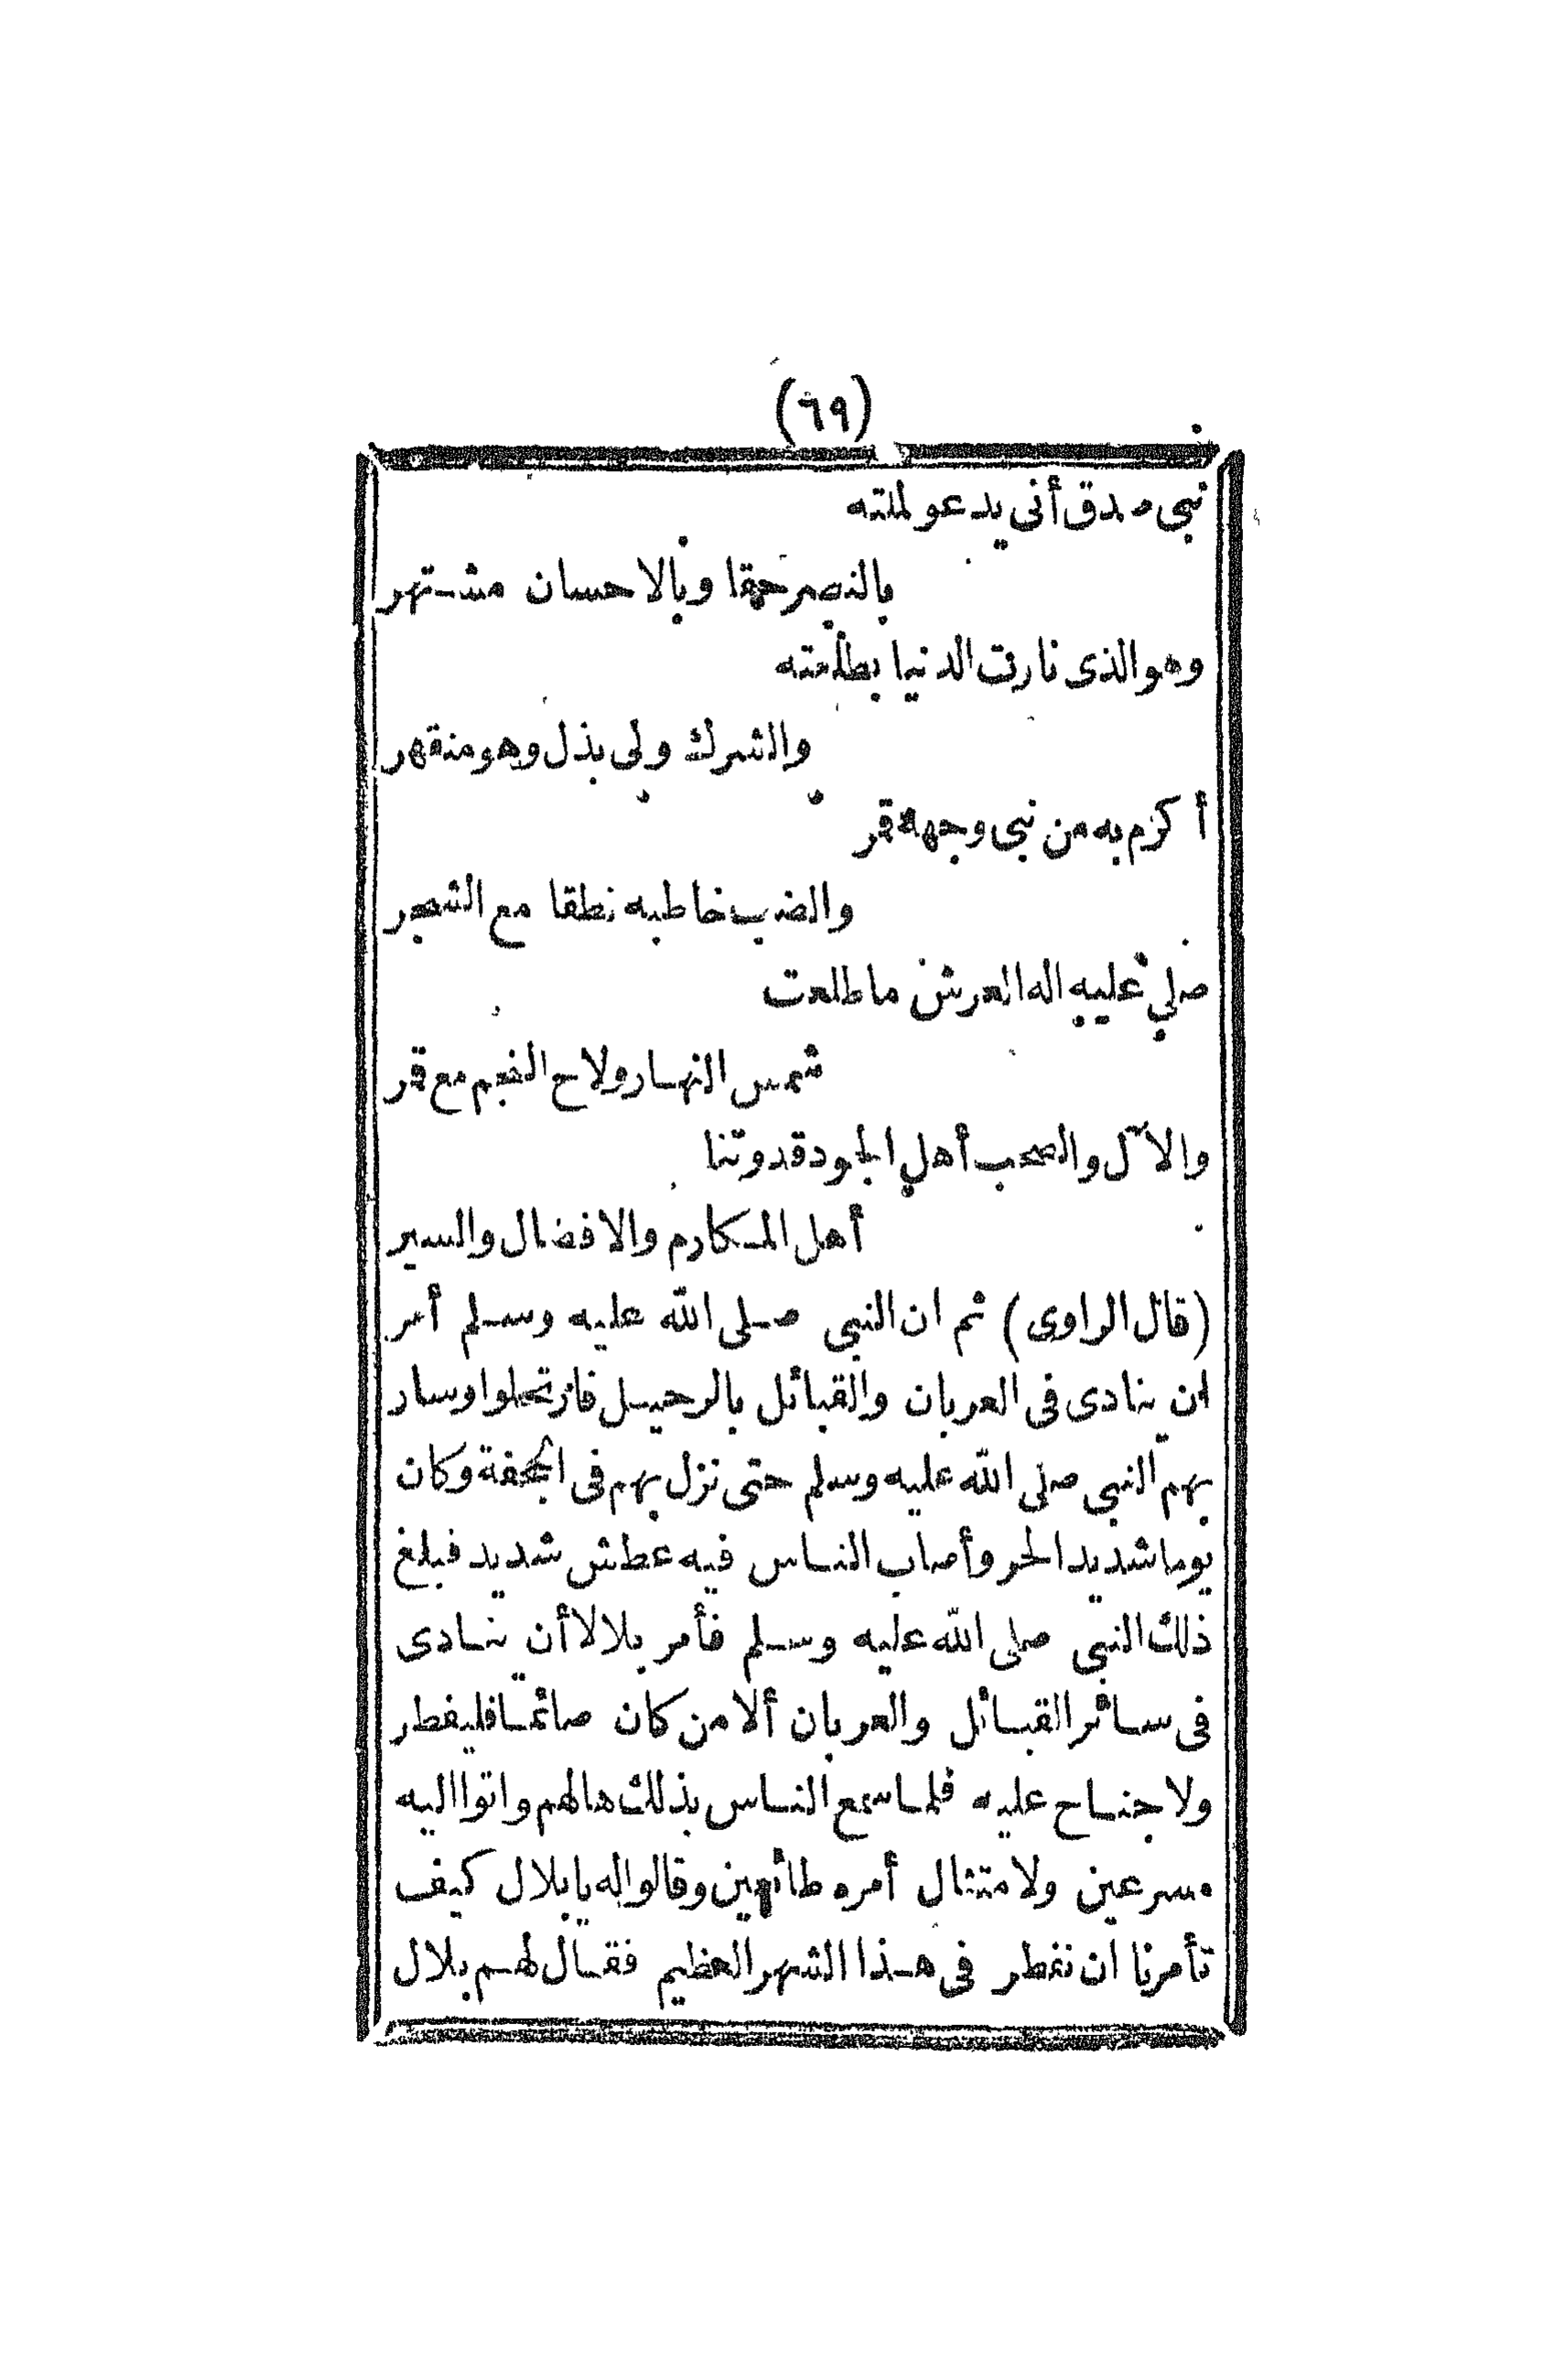 (٦٩)
نبي صدق أتى يدعو لملته
بالنصر حقا وبالاحسان مشتهر
وهو الذى نارت الدنيا بطلعته
والشرك ولى بذل وهو منقهر
أكرم به من نبى وجهه قمر
والضب خاطبه نطقا مع الشجر
صلى عليه اله العرش ما طلعت
شمس النهار ولاح النجم مع قمر
والآل والصحب أهل الجود قدوتنا
أهل المكارم والافضال والسير
(قال الراوى) ثم ان النبي صلى الله عليه وسلم أمر
ان ينادى فى العربان والقبائل بالرحيل فارتحلوا وسار
بهم النبي صلى الله عليه وسلم حتى نزل بهم فى الجحفة وكان
يوما شديد الحر وأصاب الناس فيه عطش شديد فبلغ
ذلك النبي صلى الله عليه وسلم فأمر بلالا أن ينادى
فى سائر القبائل والعربان ألا من كان صائما فليفطر
ولا جناح عليه فلما سمع الناس بذلك هالهم واتوا اليه
مسرعين ولامتثال أمره طائعين وقالوا له يا بلال كيف
تأمرنا ان نفطر فى هذا الشهر العظيم فقال لهم بلال